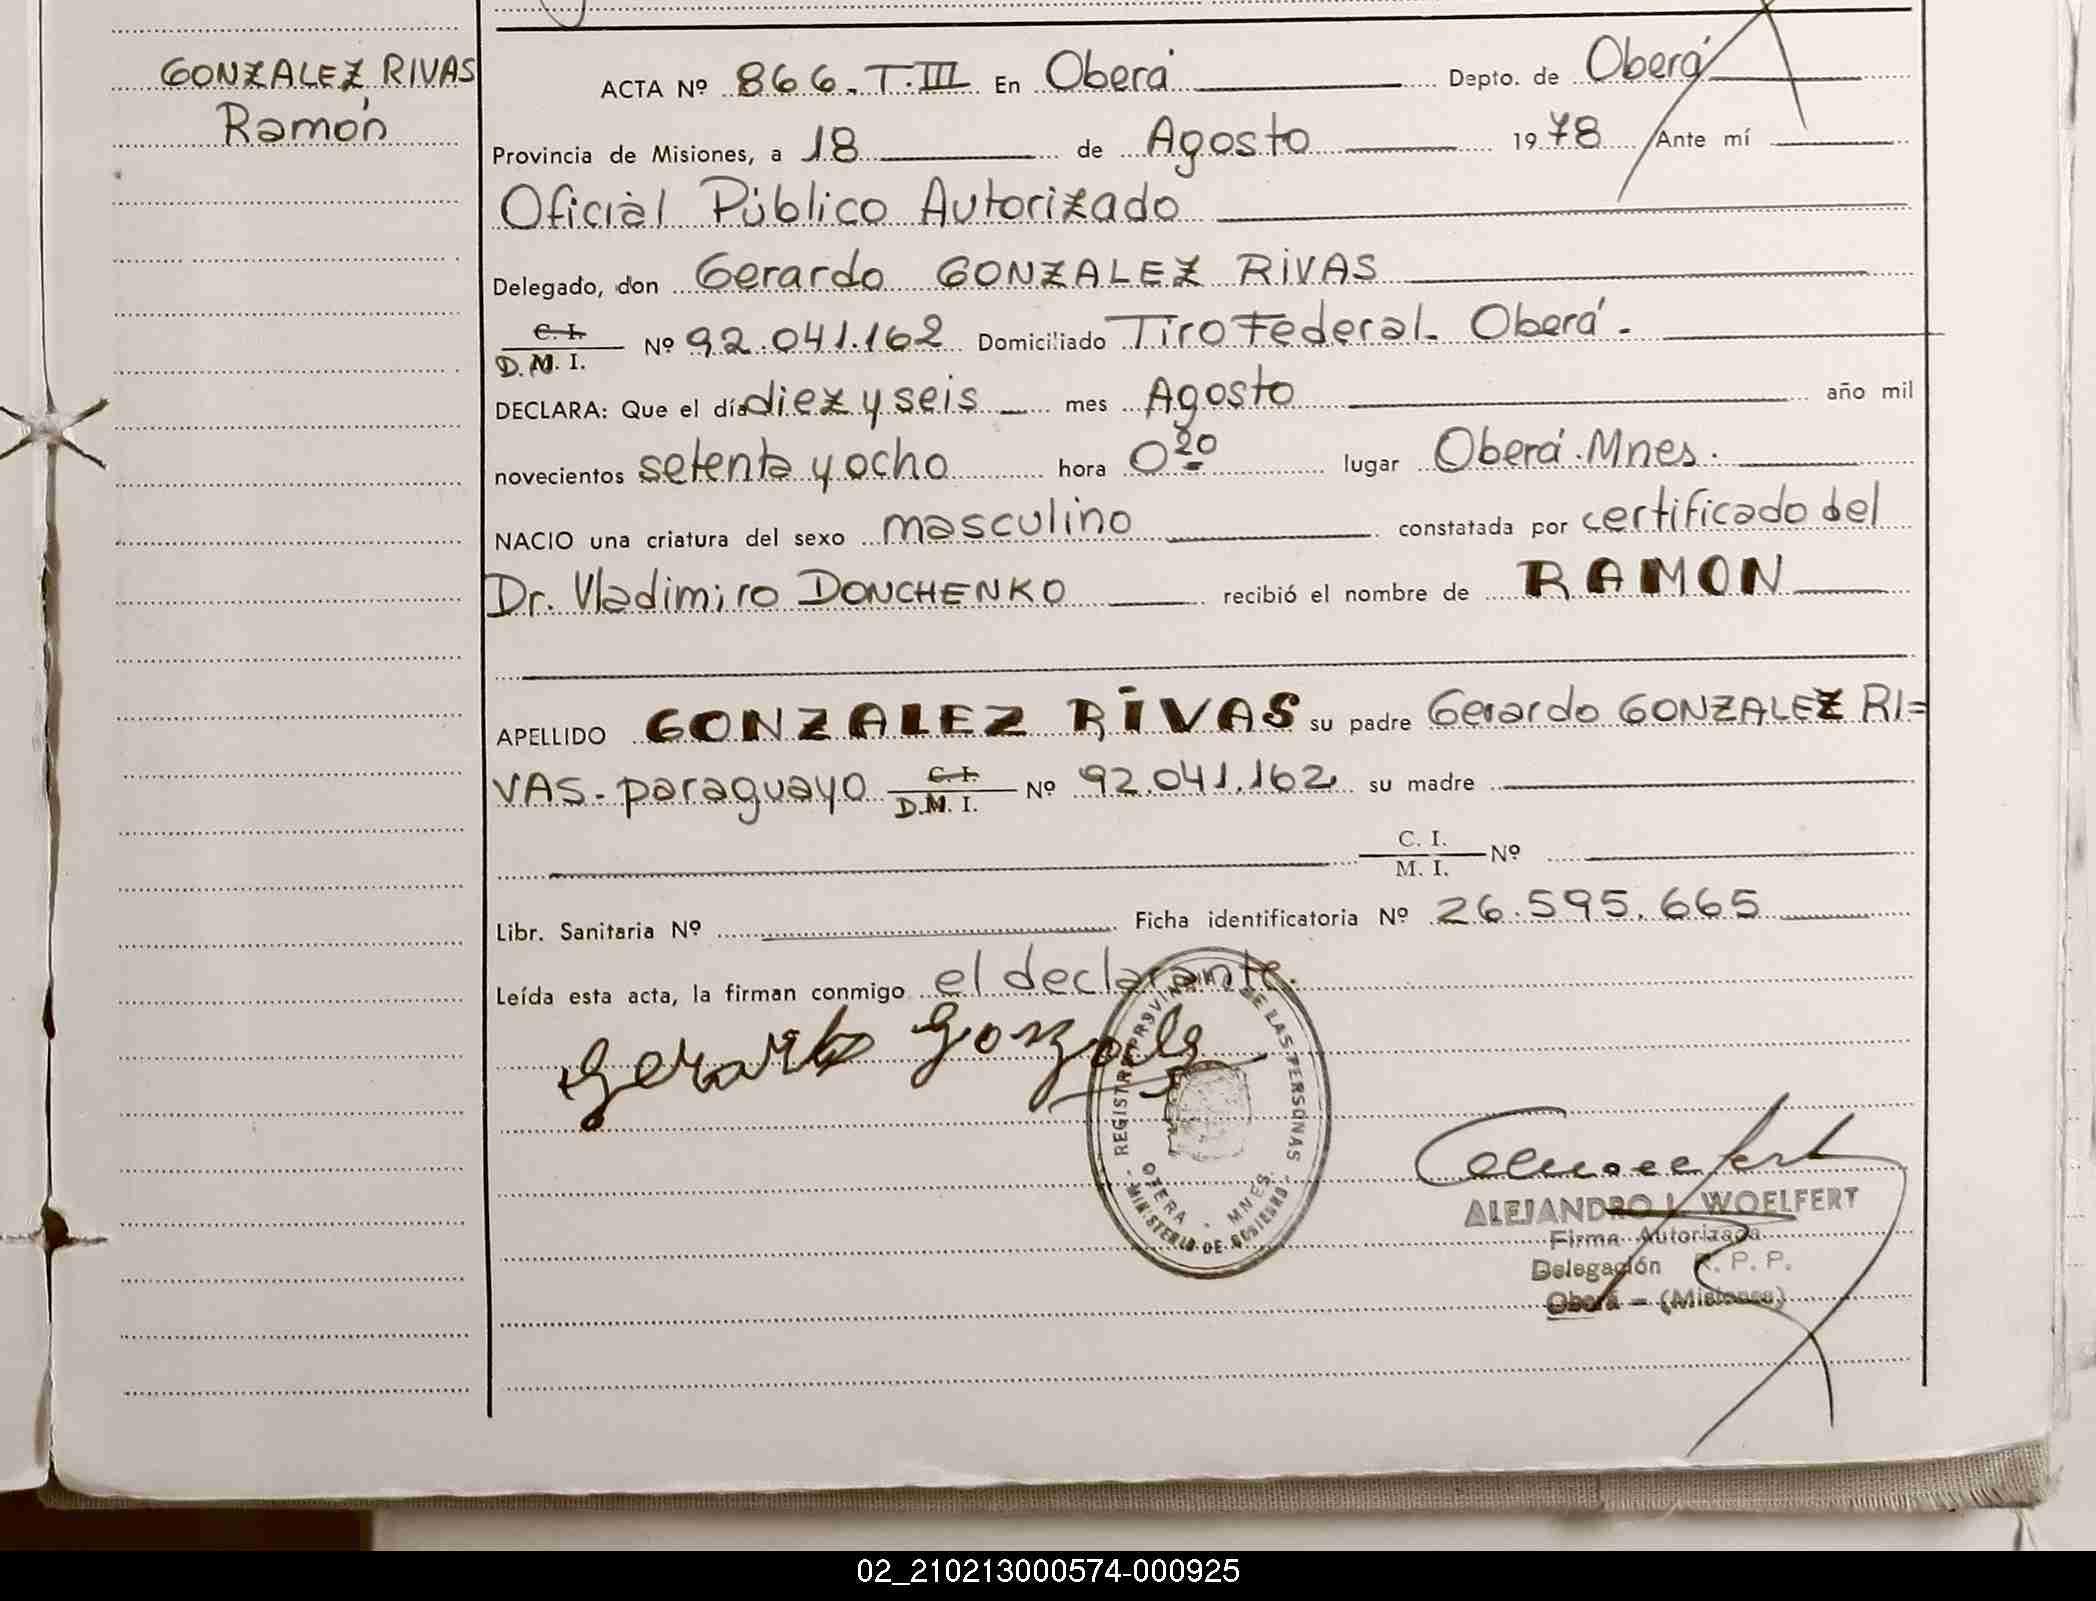 GONZALEZ RIVAS
Ramón
ACTA Nº 866.T.III En Oberá Depto. de Oberá
Provincia de Misiones, a 18 de Agosto 1978 Ante mí
Oficial Público Autorizado
Delegado, don Gerardo GONZALEZ RIVAS
C. I.
D. M. I. Nº 92.041.162 Domiciliado Tiro Federal. Oberá.
DECLARA: Que el día diez y seis mes Agosto año mil
novecientos setenta y ocho hora 0 20 lugar Oberá. Mnes.
NACIO una criatura del sexo masculino constatada por certificado del
Dr. Vladimiro DONCHENKO recibió el nombre de RAMON
APELLIDO GONZALEZ RIVAS su padre Gerardo GONZALEZ RI=
VAS - paraguayo C. I. D. M. I. Nº 92.041.162 su madre
C. I.
M. I. Nº
Libr. Sanitaria Nº Ficha identificatoria Nº 26.595.665
Leída esta acta, la firman conmigo el declarante.
Gerardo Gonzalez
REGISTRO PROVINCIAL DE LAS PERSONAS
OBERA - MNES.
MINISTERIO DE GOBIERNO
ALEJANDRO L. WOELFERT
Firma Autorizada
Delegación R. P. P.
Oberá - (Misiones)
02_210213000574-000925